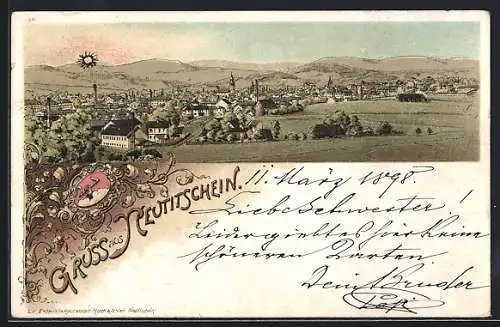 GRUSS AUS NEUTITSCHEIN.
11. März 1898.
Liebe Schwester!
Leider giebt es hier keine
schöneren Karten
Dein Bruder
Pepi